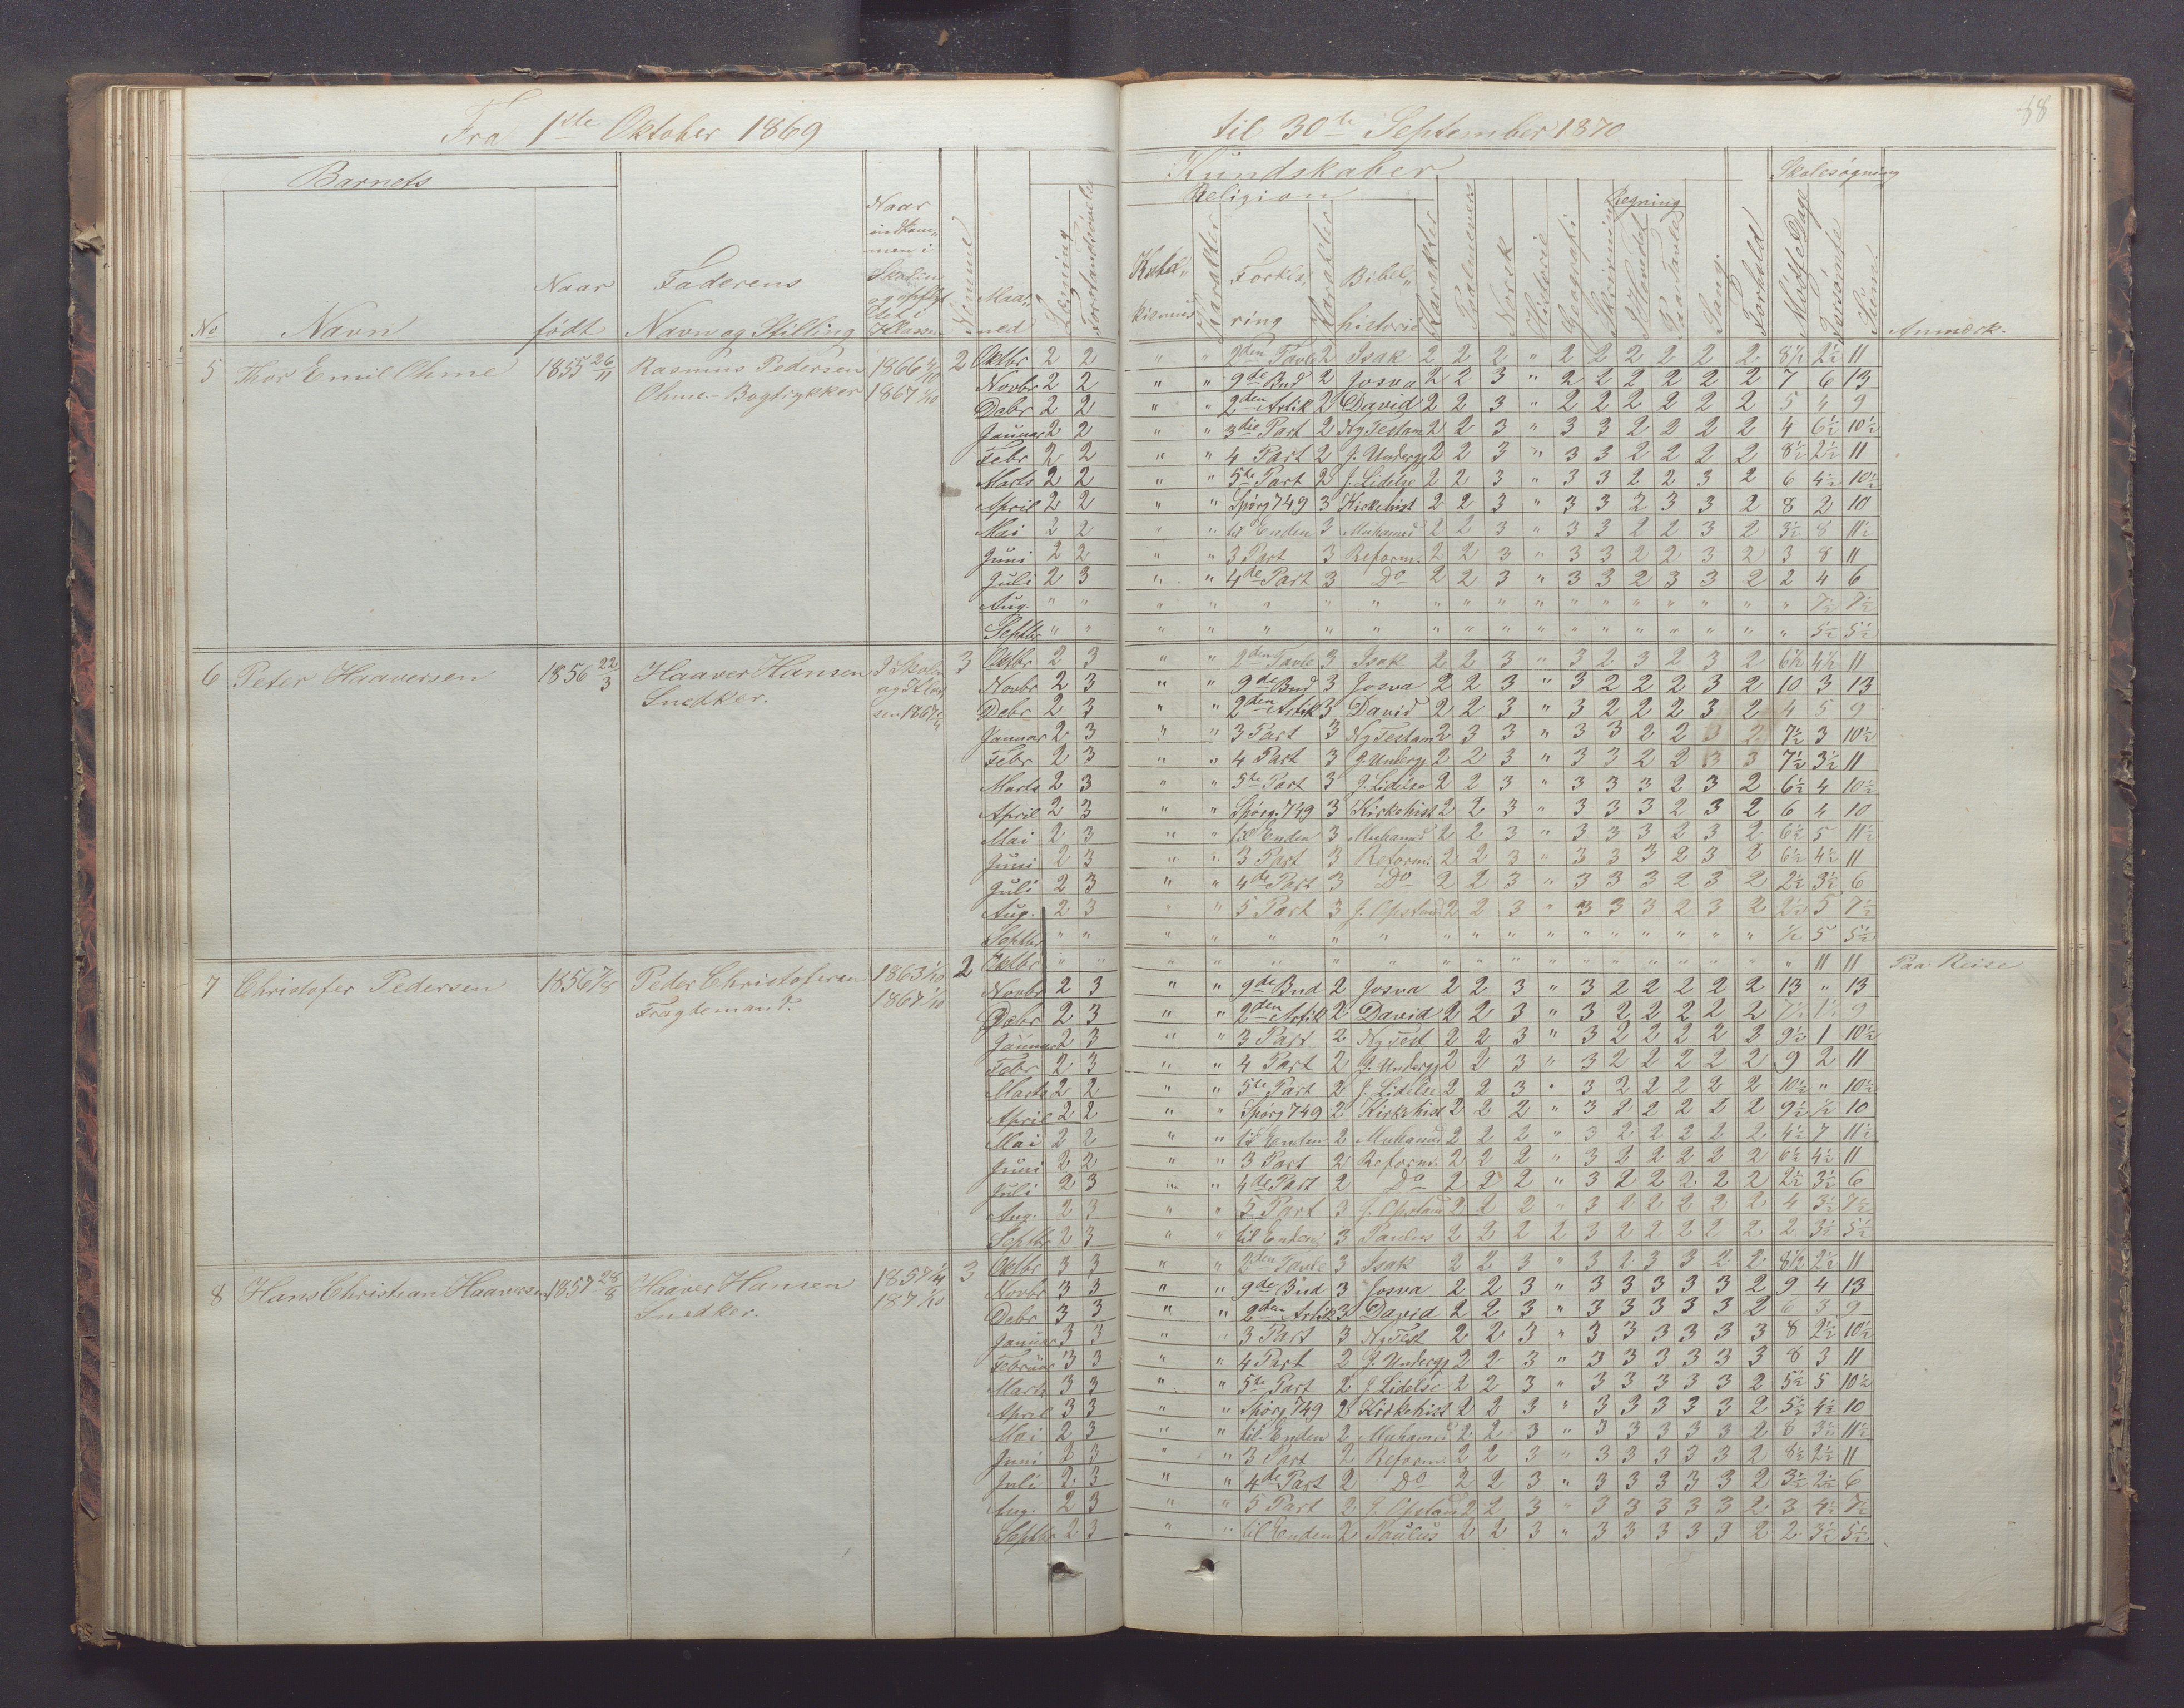 Fra 1ste Oktober 1869
til 30te September 1870
58
Barnets
Kundskaber
Skolesøgning
Religion
No
Navn
Naar født
Faderens Navn og Stilling
Maaned
Læsning
Forstandsøvelse
Karakter
Forklaring
Karakter
Bibelhistorie
Karakter
Norsk
Historie
Geografi
Skrivning
Regning
I Hovedet
Paa Tavlen
Sang
Forhold
Mødte Dage
Forsømte
Sum
Anmærk.
5 Thor Emil Ohme 1855 26/11 Rasmus Pedersen 1866 1/10 2 Oktbr 2 2 " " 2den Tavle 2 Isak 2 2 2 " 2 2 2 2 2 2 8½ 2½ 11
Ohme - Bogtrykker 1867 1/10 Novbr 2 2 " " 9de Bud 2 Josva 2 2 3 " 2 2 2 2 2 2 7 6 13
Debr 2 2 " " 2den Artik 2 David 2 2 3 " 2 2 2 2 2 2 5 4 9
Januar 2 2 " " 3die Part 2 Ny Testam 2 2 3 " 3 3 2 2 2 2 4 6½ 10½
Febr 2 2 " " 4 Part 2 J. Undergj 2 2 3 " 3 3 2 2 2 2 8½ 2½ 11
Marts 2 2 " " 5te Part 2 J. Lidelse 2 2 3 " 3 3 2 2 3 2 6 4½ 10½
April 2 2 " " Spørg 749 3 Kirkehist 2 2 3 " 3 3 2 3 3 2 8 2 10
Mai 3 2 " " til Enden 3 Muhamed 2 2 3 " 3 3 2 2 3 2 3½ 8 11½
Juni 2 2 " " 3 Part 3 Reform. 2 2 3 " 3 3 2 2 3 2 3 8 11
Juli 2 3 " " 4de Part 3 Do 2 2 3 " 3 3 2 3 3 2 2 4 6
Aug. " " " " " " " " " " " " " " " " " " 7½ 7½
Septbr " " " " " " " " " " " " " " " " " " 5½ 5½
6 Peter Haaversen 1856 22/3 Haaver Hansen I Skolen 3 Oktbr 2 3 " " 2den Tavle 3 Isak 2 2 3 " 3 2 3 2 3 2 6½ 4½ 11
Snedker. og Klas Novbr 2 3 " " 9de Bud 3 Josva 2 2 3 " 3 2 2 2 3 2 10 3 13
sen 1867 Debr 2 3 " " 2den Artik 3 David 2 2 3 " 3 2 2 2 3 2 4 5 9
Januar 2 3 " " 3 Part 3 Ny Testam 2 3 3 " 3 3 2 2 3 2 7½ 3 10½
Febr 2 3 " " 4 Part 3 J. Undergj 2 2 3 " 3 3 2 2 3 3 7½ 3½ 11
Marts 2 3 " " 5te Part 3 J. Lidelse 2 2 3 " 3 3 3 2 3 2 6½ 4 10½
April 2 3 " " Spørg. 749 3 Kirkehist 2 2 3 " 3 3 3 2 3 2 6 4 10
Mai 2 3 " " til Enden 3 Muhamed 2 2 3 " 3 3 3 2 3 2 6½ 5 11½
Juni 2 3 " " 3 Part 3 Reform. 2 2 3 " 3 3 3 2 3 2 6½ 4½ 11
Juli 2 3 " " 4de Part 3 Do 2 2 3 " 3 3 3 2 3 2 2½ 3½ 6
Aug. 2 3 " " 5 Part 3 J. Opstand 2 2 3 " 3 3 3 2 3 2 2½ 5 7½
Septbr " " " " " " " " " " " " " " " " " ½ 5 5½
7 Christofer Pedersen 1856 Peder Christofersen 1863 1/10 2 Oktbr " " " " " " " " " " " " " " " " " " 11 11 Paa Reise
Fragtemand. 1867 1/10 Novbr 2 3 " " 9de Bud 2 Josva 2 2 3 " 3 2 2 2 2 2 13 " 13
Debr 2 3 " " 2den Artik 2 David 2 2 3 " 3 2 2 2 2 2 7½ 1½ 9
Januar 2 3 " " 3 Part 2 Ny Test 2 2 3 " 3 2 2 2 2 2 9½ 1 10½
Febr 2 3 " " 4 Part 2 J. Undergj 2 2 3 " 3 2 2 2 2 2 9 2 11
Marts 2 2 " " 5te Part 2 J. Lidelse 2 2 3 " 3 2 2 2 2 2 10½ " 10½
April 2 2 " " Spørg 749 2 Kirkehist 2 2 2 " 3 2 2 2 2 2 9½ ½ 10
Mai 2 2 " " til Enden 2 Muhamed 2 2 2 " 3 2 2 2 2 2 4½ 7 11½
Juni 2 2 " " 3 Part 2 Reform. 2 2 2 " 3 2 2 2 2 2 6½ 4½ 11
Juli 2 3 " " 4de Part 2 Do 2 2 2 " 3 2 2 2 2 2 2½ 3½ 6
Aug. 2 3 " " 5 Part 3 J. Opstand 2 2 2 " 3 2 2 2 2 2 4 3½ 7½
Septbr 2 3 " " til Enden 3 Paulus 2 2 2 2 3 2 2 2 2 2 2 3½ 5½
8 Hans Christian Haaversen 1857 28/8 Haaver Hansen 1857 3 Oktbr 3 3 " " 2den Tavle 3 Isak 2 2 3 " 3 2 3 3 2 2 8½ 2½ 11
Snedker. 187 1/10 Novbr 3 3 " " 9de Bud 3 Josva 2 2 3 " 3 3 3 3 3 2 9 4 13
Debr 3 3 " " 2den Artik 3 David 2 2 3 " 3 3 3 3 3 2 6 3 9
Januar 3 3 " " 3 Part 3 Ny Test 2 2 3 " 3 3 3 3 3 3 8 2½ 10½
Februar 3 3 " " 4 Part 2 J. Undergj 2 2 3 " 3 3 3 3 3 3 8 3 11
Marts 3 3 " " 5te Part 2 J. Lidelse 2 2 3 " 3 3 3 3 3 2 5½ 5 10½
April 3 3 " " Spørg 749 2 Kirkehist 2 2 3 " 3 3 3 3 3 2 5½ 4½ 10
Mai 2 3 " " til Enden 2 Muhamed 2 2 3 " 3 3 3 3 3 2 8 3½ 11½
Juni 2 3 " " 3 Part 2 Reform. 2 2 3 " 3 3 3 3 3 2 8½ 2½ 11
Juli 2 3 " " 4de Part 2 Do 2 2 3 " 3 3 3 3 3 2 3½ 2½ 6
Aug. 2 3 " " 5 Part 2 J. Opstand 2 2 3 " 3 3 3 3 3 2 3 4½ 7½
Septbr 2 3 " " til Enden 2 Paulus 2 2 3 " 3 3 3 3 3 2 2 3½ 5½